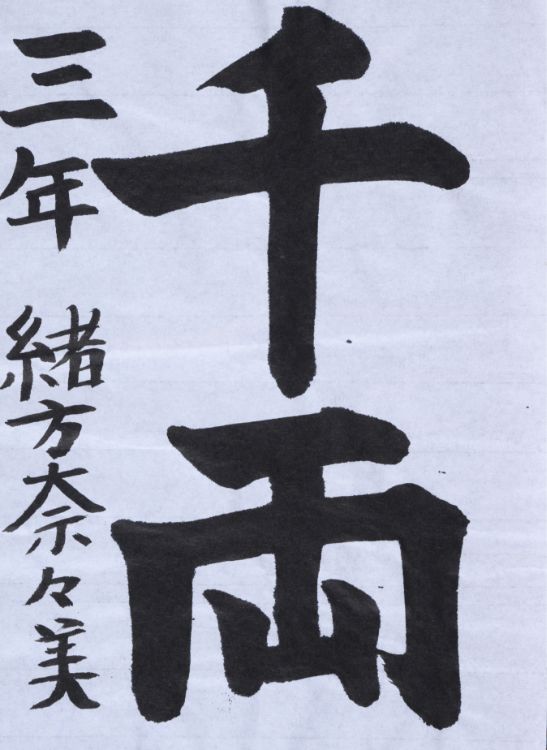 千両
三年 緒方奈々美